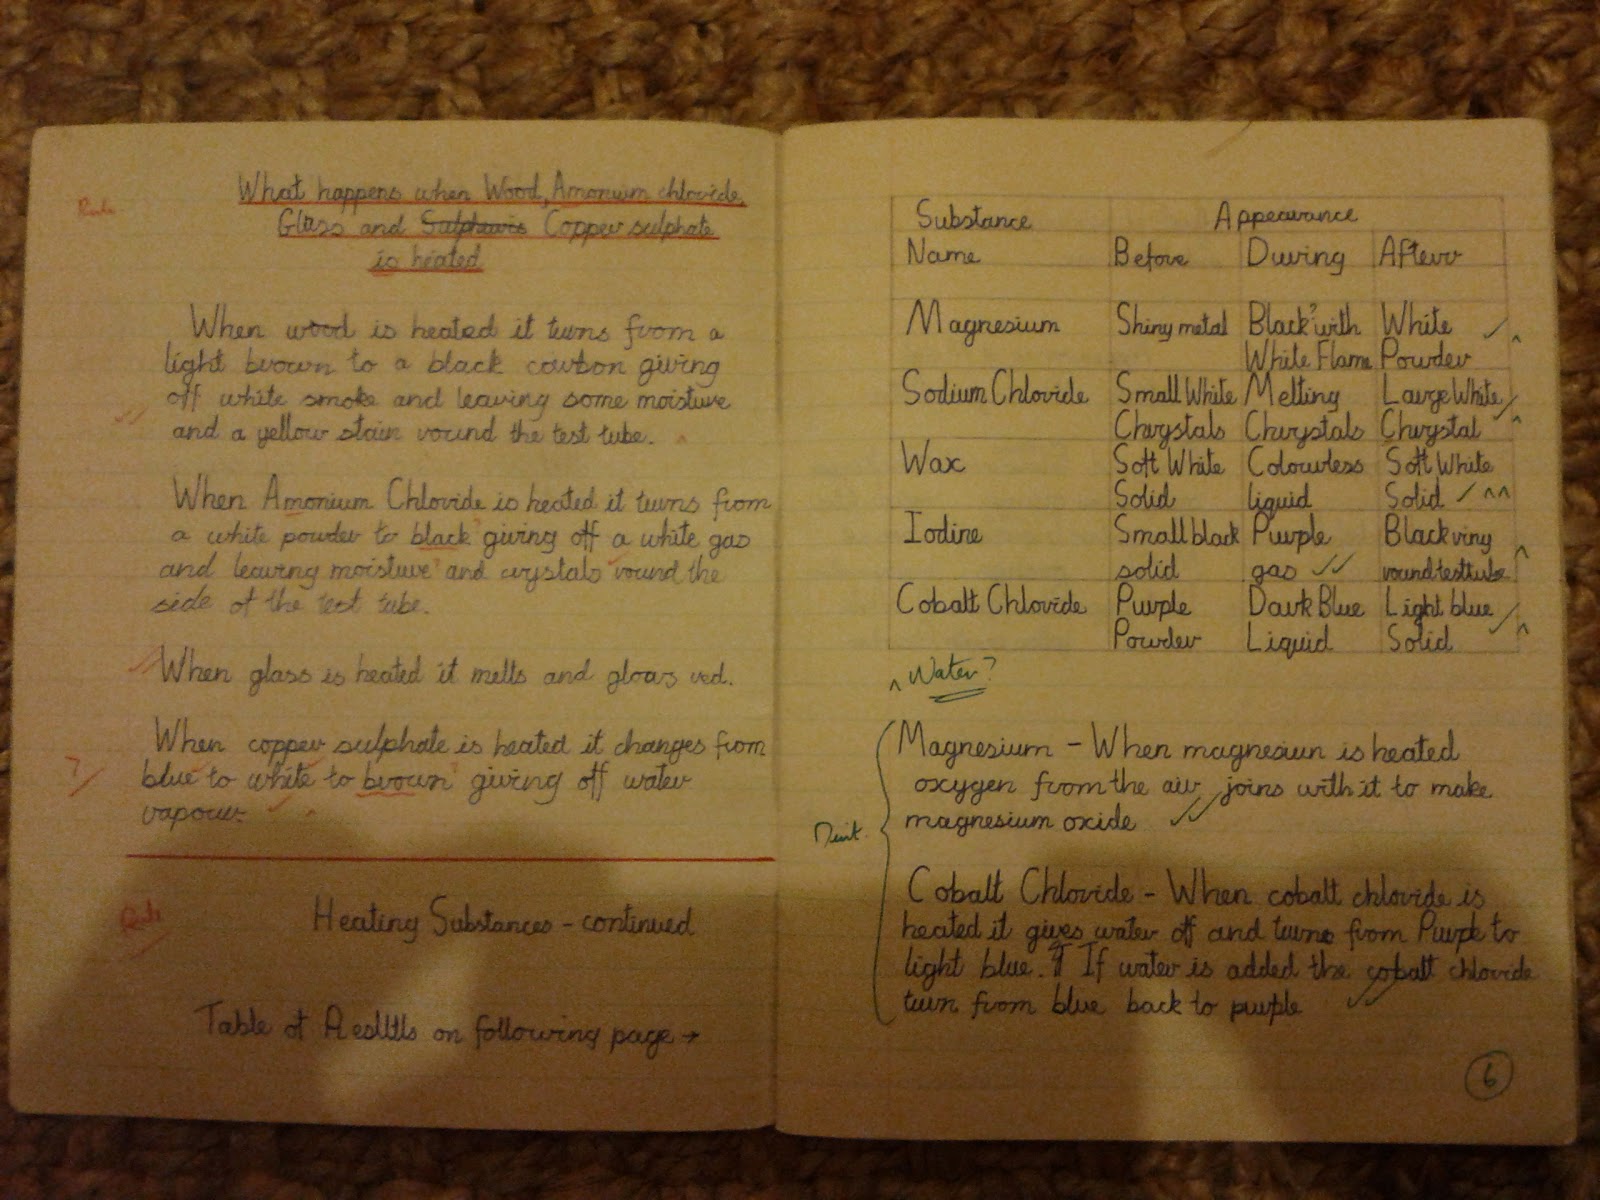 Rule
What happens when Wood, Amonium chloride,
Glass and Sulphuris Copper sulphate
is heated
When wood is heated it turns from a
light brown to a black carbon giving
off white smoke and leaving some moisture
and a yellow stain round the test tube.
When Amonium Chloride is heated it turns from
a white powder to black? giving off a white gas
and leaving moisture? and crystals round the
side of the test tube.
When glass is heated it melts and glows red.
When copper sulphate is heated it changes from
? blue to white to brown? giving off water
vapour.
Rule
Heating Substances - continued
Table of Reslltls on following page →
Substance Appearance
Name Before During Afterr
Magnesium Shiny metal Black? with White
White Flame Powder
Sodium Chloride Small White Melting Large White
Chrystals Chrystals Chrystal
Wax Soft White Colourless Soft White
Solid liquid Solid ^^
Iodine Small black Purple Black ring
solid gas round testtube
Cobalt Chloride Purple Dark Blue Light blue
Powder Liquid Solid
^ Water?
Magnesium - When magnesiun is heated
oxygen from the air joins with it to make
magnesium oxide
Cobalt Chloride - When cobalt chloride is
heated it gives water off and turns from Purple to
light blue. If water is added the cobalt chloride
turn from blue back to purple
6